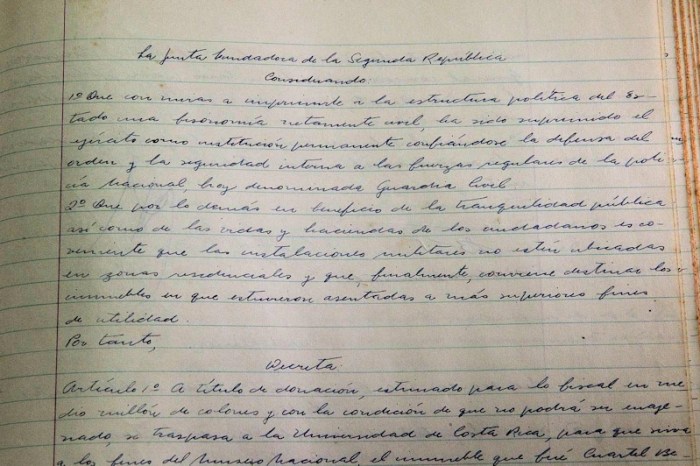 La Junta Fundadora de la Segunda República
Considerando:
1º Que con miras a imprimirle a la estructura política del Es-
tado una fisonomía netamente civil, ha sido suprimido el
ejército como institución permanente confiándose la defensa del
orden y la seguridad interna a las fuerzas regulares de la poli-
cía Nacional, hoy denominada Guardia Civil.
2º Que por lo demás en beneficio de la tranquilidad pública
así como de las vidas y haciendas de los ciudadanos es co-
veniente que las instalaciones militares no estén ubicadas
en zonas residenciales y que, finalmente, conviene destinar los
inmuebles en que estuvieron asentadas a más superiores fines
de utilidad.
Por tanto,
Decreta:
Artículo 1º A título de donación, estimado para lo fiscal en me-
dio millón de colones y con la condición de que no podrá ser enaje-
nado, se traspasa a la Universidad de Costa Rica, para que sirva
a los fines del Museo Nacional, el inmueble que fué Cuartel Be-